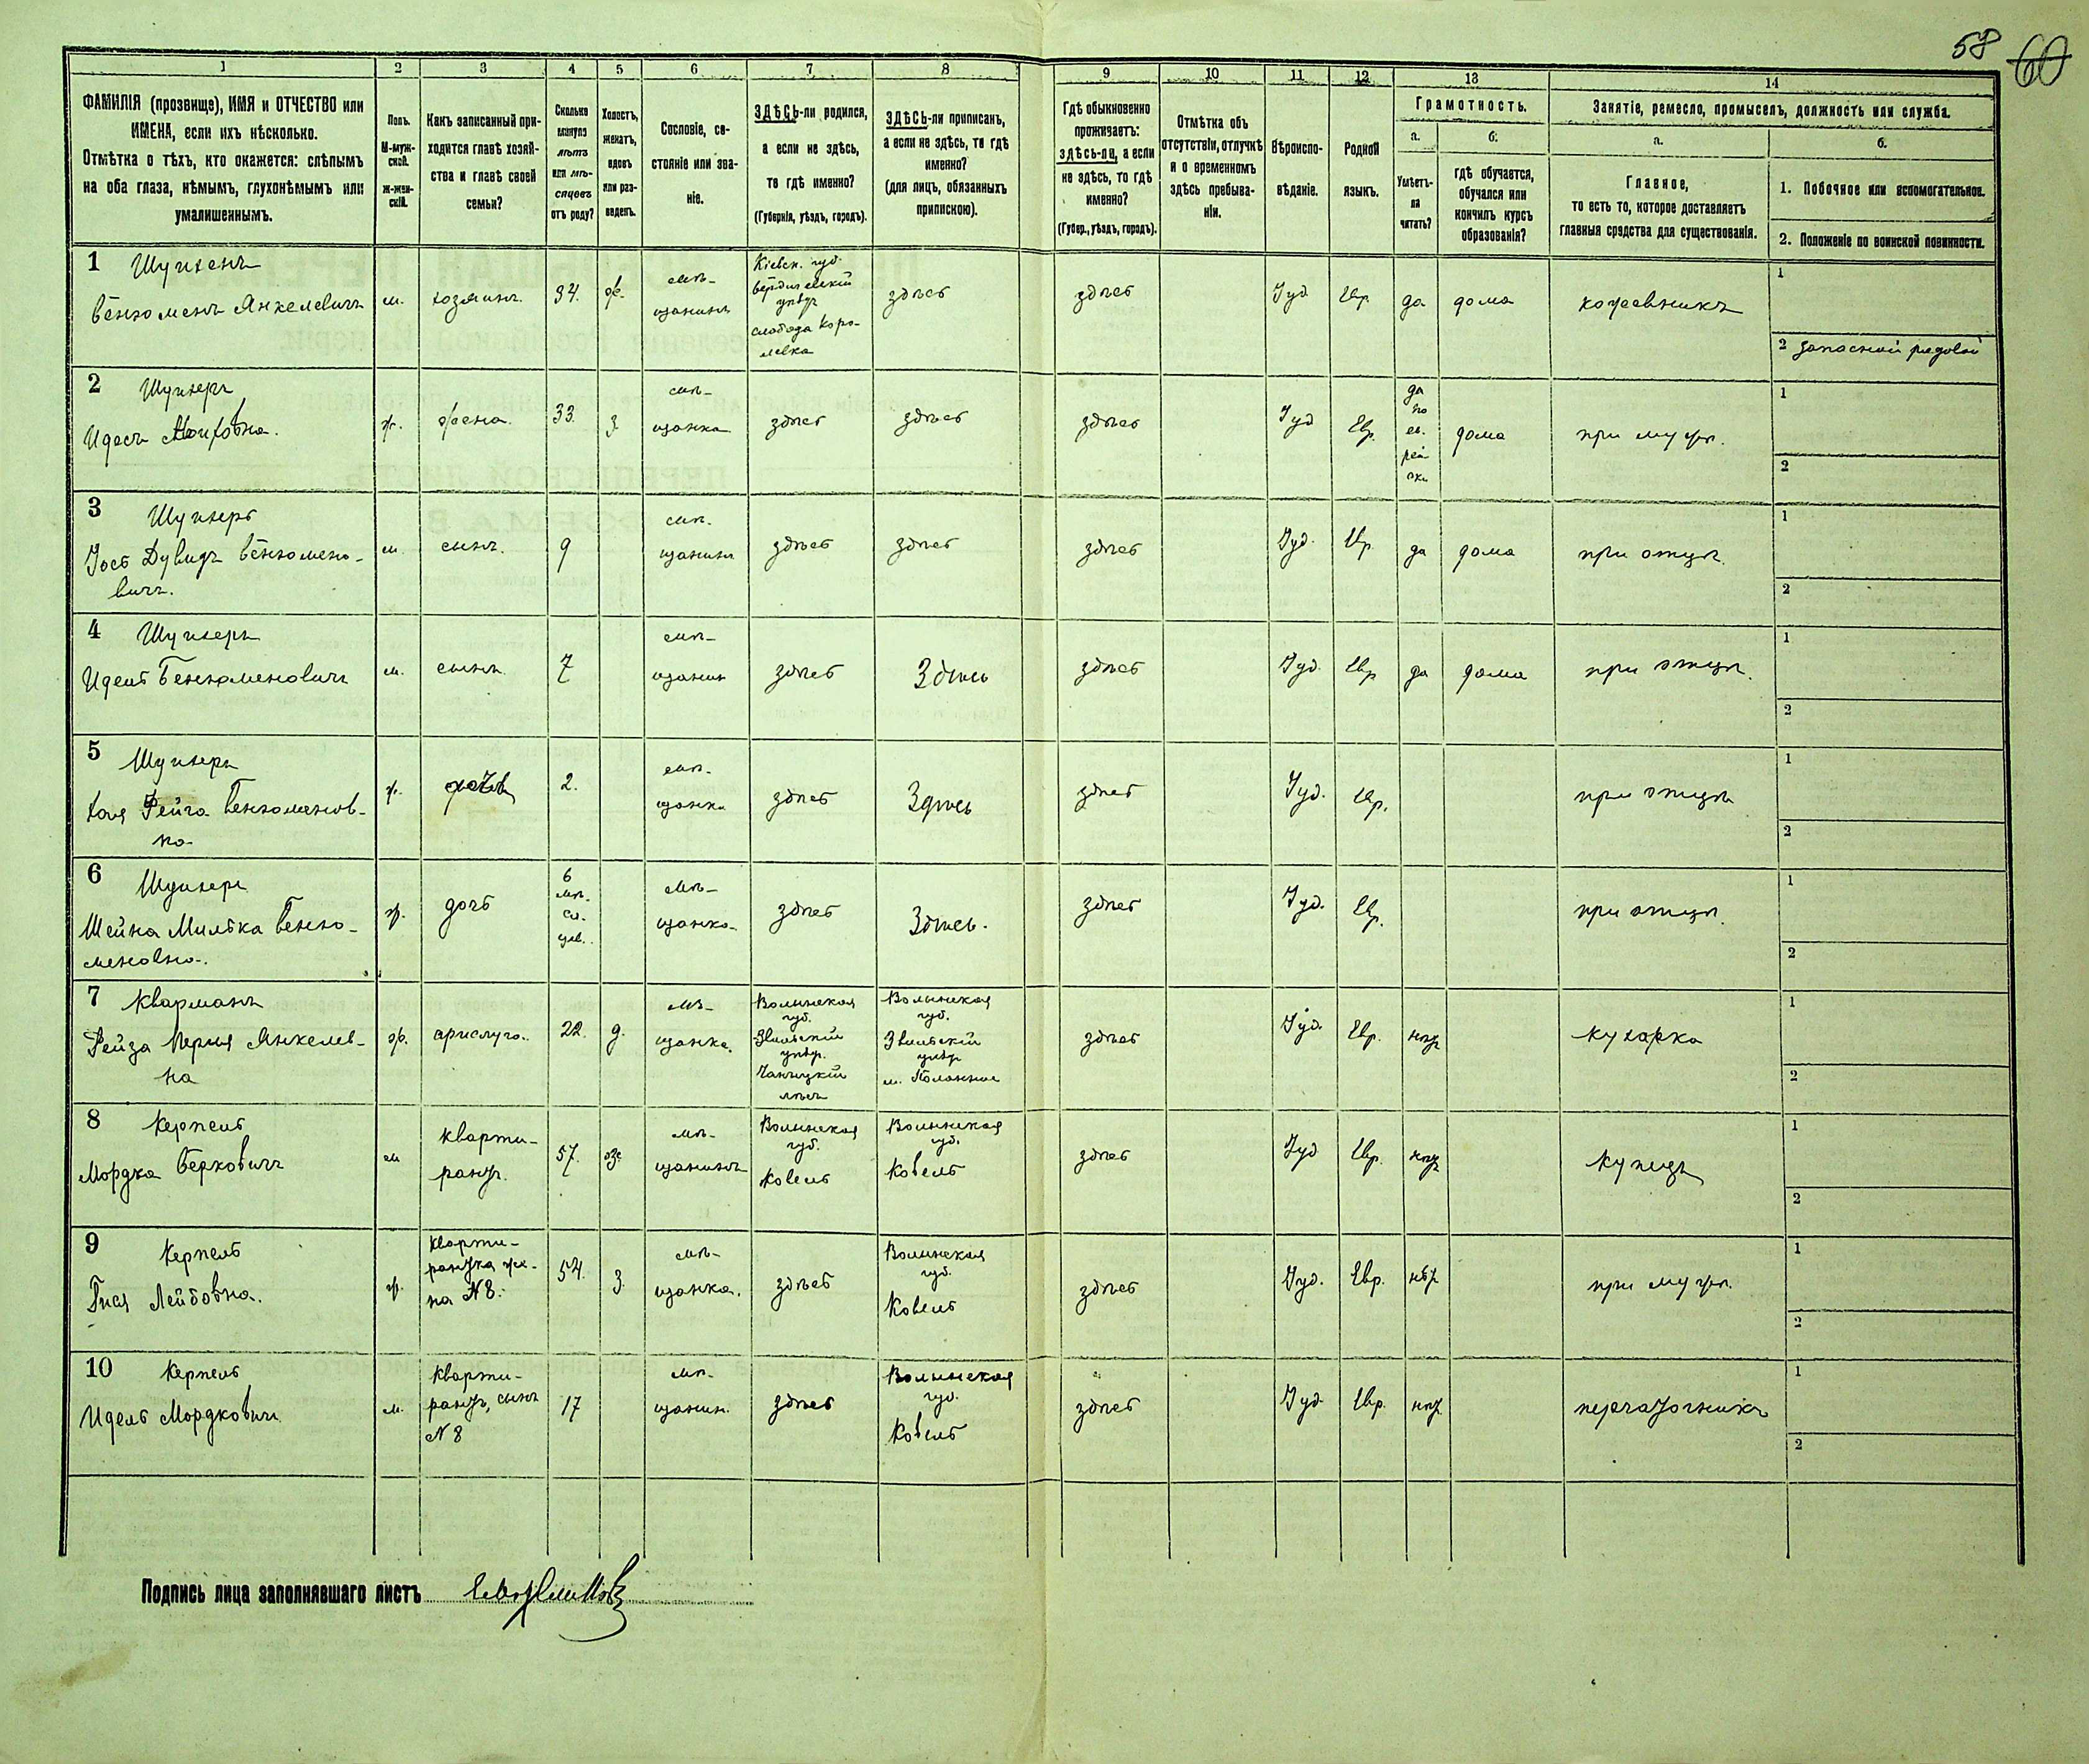 58 60
1 2 3 4 5 6 7 8 9 10 11 12 13 14
ФАМИЛІЯ (прозвище), ИМЯ и ОТЧЕСТВО или
ИМЕНА, если ихъ нѣсколько.
Отмѣтка о тѣхъ, кто окажется: слѣпымъ
на оба глаза, нѣмымъ, глухонѣмымъ или
умалишеннымъ.
Полъ.
М-муж-
ской.
Ж-жен-
скій.
Какъ записанный при-
ходится главѣ хозяй-
ства и главѣ своей
семьи?
Сколько
минуло
лѣтъ
или мѣ-
сяцевъ
отъ роду?
Холостъ,
женатъ,
вдовъ
или раз-
веденъ.
Сословіе, со-
стояніе или зва-
ніе.
ЗДѢСЬ-ли родился,
а если не здѣсь,
то гдѣ именно?
(Губернія, уѣздъ, городъ).
ЗДѢСЬ-ли приписанъ,
а если не здѣсь, то гдѣ
именно?
(для лицъ, обязанныхъ
припискою).
Гдѣ обыкновенно
проживаетъ:
здѣсь-ли, а если
не здѣсь, то гдѣ
именно?
(Губер., уѣздъ, городъ).
Отмѣтка объ
отсутствіи, отлучкѣ
и о временномъ
здѣсь пребыва-
ніи.
Вѣроиспо-
вѣданіе.
Родной
языкъ.
Грамотность.
а.
Умѣетъ-
ли
читать?
б.
гдѣ обучается,
обучался или
кончилъ курсъ
образованія?
Занятіе, ремесло, промыселъ, должность или служба.
а.
Главное,
то есть то, которое доставляетъ
главныя средства для существованія.
б.
1. Побочное или вспомогательное.
2. Положеніе по воинской повинности.
1
Бенюменъ Янкелевичъ
м. хозяинъ. 34. ж.
мѣ-
щанинъ
Кіевск. губ.
Бердичевскій
уѣздъ
слобода Коро-
левка
здѣсь здѣсь Іуд Евр. да дома кожевникъ
1
2 запасной рядовой
2 Шункеръ
ж. жена. 33. з.
мѣ-
щанка
здѣсь здѣсь здѣсь Іуд Евр.
да
по
ев-
рей-
ски
дома при мужѣ.
1
2
3 Шункеръ
Іось Дувидъ Бенюмено-
вичъ.
м. сынъ. 9
мѣ-
щанинъ
здѣсь здѣсь здѣсь Іуд. Евр. да дома при отцѣ.
1
2
4 Шункеръ
Идель Бенюменовичъ
м. сынъ. 7
мѣ-
щанин
здѣсь Здѣсь здѣсь Іуд. Евр да дома при отцѣ.
1
2
5 Шункеръ
Хая Фейга Бенюменов-
на
ж. дочь 2.
мѣ-
щанка
здѣсь Здѣсь здѣсь Іуд. Евр. при отцѣ
1
2
6 Шункеръ
Шейна Милька Беню-
меновна.
ж. дочь
6
мѣ-
ся-
цев.
мѣ-
щанка
здѣсь Здѣсь. здѣсь Іуд. Евр. при отцѣ.
1
2
7 Кварманъ
Рейза Перля Янкелев-
на
ж. прислуга. 22. д.
мѣ-
щанка.
Волынская
губ.
Звильскій
уѣздъ.
лѣсъ
Волынская
губ.
Звильскій
уѣздъ
м. Полонное
здѣсь Іуд. Евр. нѣт кухарка
1
2
8 Керпель
Мордка Берковичъ
м
кварти-
рантъ.
57. же
мѣ-
щанинъ
Волынская
губ.
Ковель
Волынская
губ.
Ковель
здѣсь Іуд Евр. нѣт купецъ
1
2
9 Керпель
Гися Лейбовна.
ж.
кварти-
рантка же-
на №8.
54. з.
мѣ-
щанка.
здѣсь
Волынская
губ.
Ковель
здѣсь Іуд. Евр. нѣт при мужѣ.
1
2
10 Керпель
Идель Мордковичъ
м.
кварти-
рантъ, сынъ
№8
17
мѣ-
щанин.
здѣсь
Волынская
губ.
Ковель
здѣсь Іуд. Евр. нѣт. перчаточникъ
1
2
Подпись лица заполнявшаго листъ